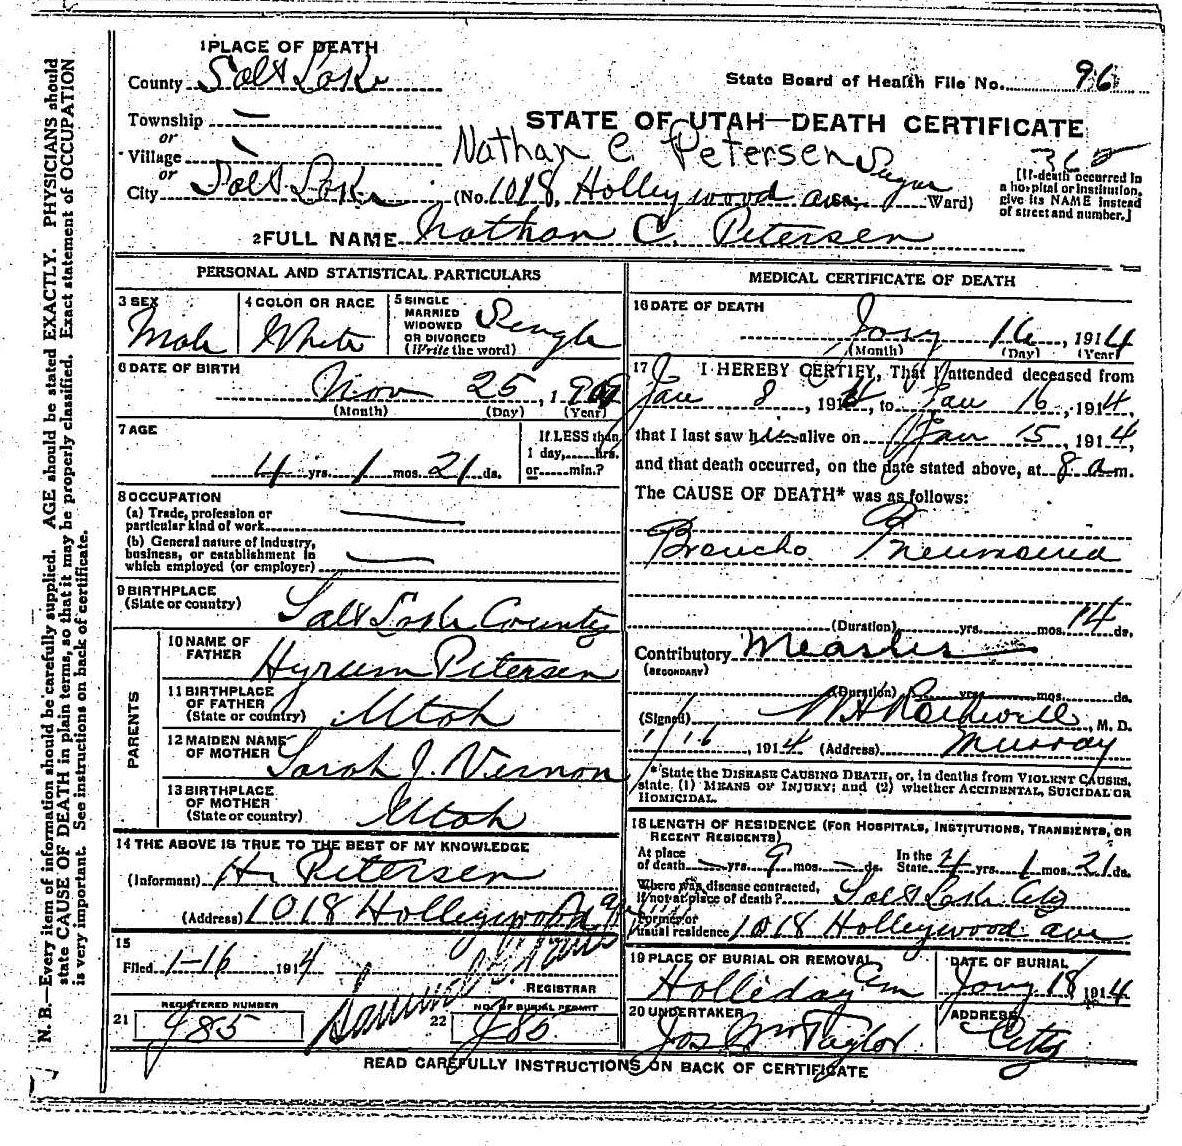 1 PLACE OF DEATH
County Salt Lake
State Board of Health File No. 96
Township —
or
Village —
or
STATE OF UTAH—DEATH CERTIFICATE
Nathan C. Petersen
365
City Salt Lake (No. 1018 Holleywood ave. Sugar Ward)
[If death occurred in a hospital or institution, give its NAME instead of street and number.]
2 FULL NAME Nathan C. Petersen
PERSONAL AND STATISTICAL PARTICULARS
3 SEX Male
4 COLOR OR RACE White
5 SINGLE MARRIED WIDOWED OR DIVORCED (Write the word) Single
6 DATE OF BIRTH
Nov 25, 1909
(Month) (Day) (Year)
7 AGE
4 yrs. 1 mos. 21 ds.
If LESS than 1 day, hrs. or min.?
8 OCCUPATION
(a) Trade, profession or particular kind of work —
(b) General nature of industry, business, or establishment in which employed (or employer) —
9 BIRTHPLACE (State or country) Salt Lake County
PARENTS
10 NAME OF FATHER Hyrum Petersen
11 BIRTHPLACE OF FATHER (State or country) Utah
12 MAIDEN NAME OF MOTHER Sarah J. Vernon
13 BIRTHPLACE OF MOTHER (State or country) Utah
14 THE ABOVE IS TRUE TO THE BEST OF MY KNOWLEDGE
(Informant) H. Petersen
(Address) 1018 Holleywood
15
Filed 1-16 1914
REGISTRAR
REGISTERED NUMBER
21 J85
NO. OF BURIAL PERMIT
22 J85
MEDICAL CERTIFICATE OF DEATH
16 DATE OF DEATH
Jany 16, 1914
(Month) (Day) (Year)
17 I HEREBY CERTIFY, That I attended deceased from
Jan 8, 1914, to Jan 16, 1914,
that I last saw him alive on Jan 15, 1914,
and that death occurred, on the date stated above, at 8 a.m.
The CAUSE OF DEATH* was as follows:
Broncho Pneumonia
(Duration) yrs. mos. 14 ds.
Contributory Measles
(SECONDARY)
(Duration) yrs. mos. ds.
(Signed) , M. D.
1/16, 1914 (Address) Murray
*State the DISEASE CAUSING DEATH, or, in deaths from VIOLENT CAUSES, state (1) MEANS OF INJURY; and (2) whether ACCIDENTAL, SUICIDAL OR HOMICIDAL.
18 LENGTH OF RESIDENCE (FOR HOSPITALS, INSTITUTIONS, TRANSIENTS, OR RECENT RESIDENTS)
At place of death — yrs. 9 mos. — ds. In the State 4 yrs. 1 mos. 21 ds.
Where was disease contracted, if not at place of death? Salt Lake City
Former or usual residence 1018 Holleywood ave
19 PLACE OF BURIAL OR REMOVAL Holliday Cem
DATE OF BURIAL Jany 18 1914
20 UNDERTAKER Jos Wm Taylor
ADDRESS City
READ CAREFULLY INSTRUCTIONS ON BACK OF CERTIFICATE
N. B.—Every item of information should be carefully supplied. AGE should be stated EXACTLY. PHYSICIANS should
state CAUSE OF DEATH in plain terms, so that it may be properly classified. Exact statement of OCCUPATION
is very important. See instructions on back of certificate.